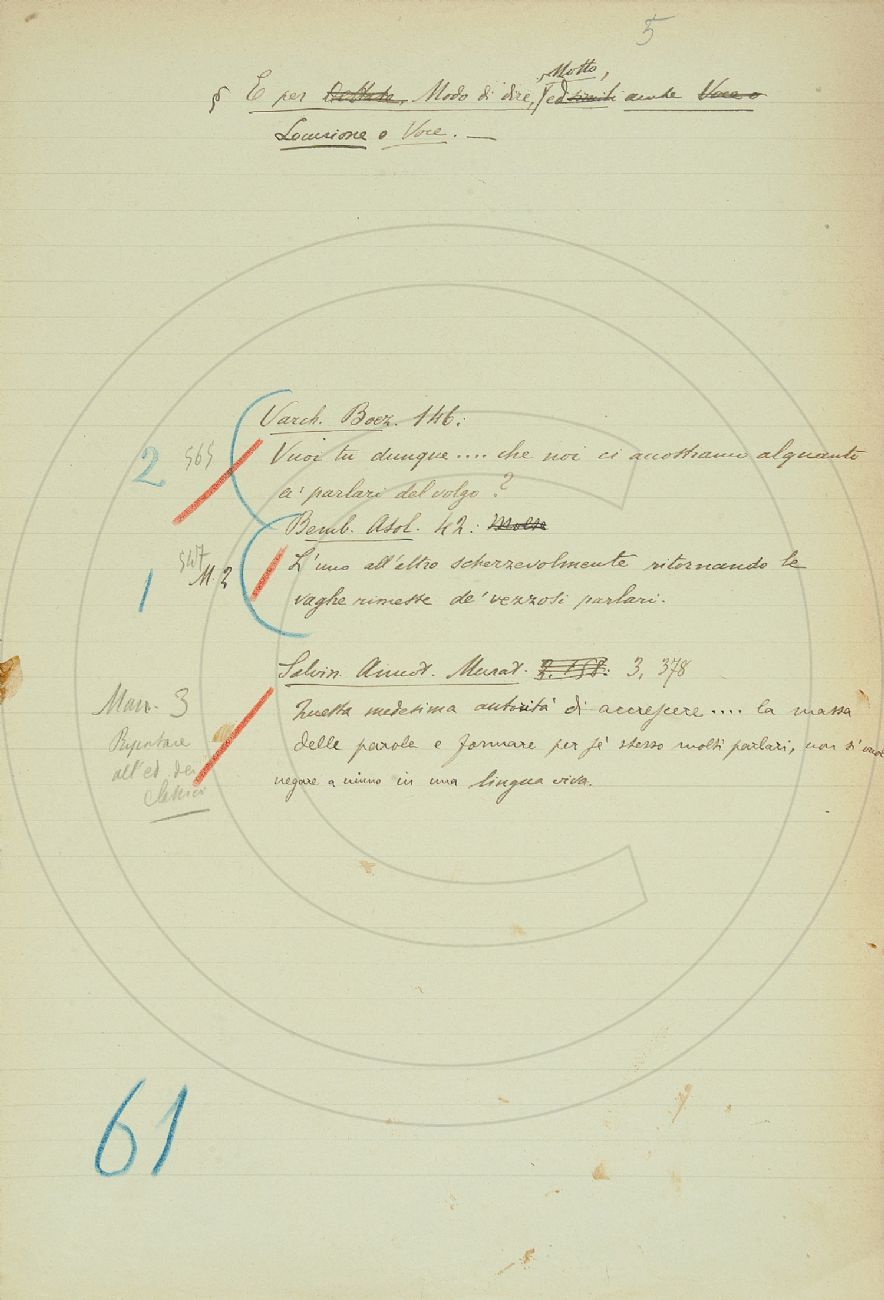 5
§ E per Dettato, Modo di dire, Motto, ed simili anche Voce o
Locuzione o Voce. —
Varch. Boez. 146:
2 565 Vuoi tu dunque.... che noi ci accostiamo alquanto
a' parlari del volgo?
Bemb. Asol. 42: Molte
1 547 M. 2 L'uno all'altro scherzevolmente ritornando le
vaghe rimesse de' vezzosi parlari.
Salvin. Annot. Murat. 3, 378
Man. 3 Questa medesima autorità di accrescere.... la massa
Riportare delle parole e formare per sé stesso molti parlari, non si vuol
all'ed. dei negare a niuno in una lingua viva.
Classici
61